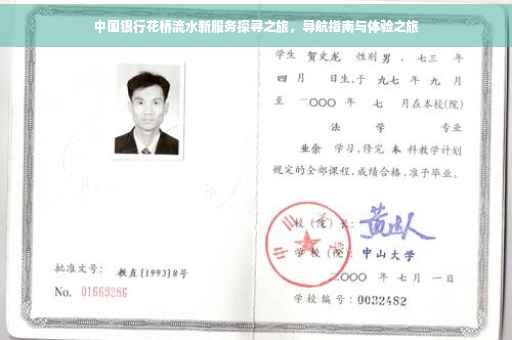 中国银行花桥流水新服务探寻之旅，导航指南与体验之旅
学生 贺文龙 性别 男 、七三 年
四 月 日生,于 九七 年 九 月
至 二〇〇〇 年 七 月在本校(院)
法 学 专业
业余 学习,修完 本 科教学计划
规定的全部课程,成绩合格,准予毕业。
校(院)长:
学校(院): 中山大学
二〇〇〇 年 七月 一日
批准文号: 教直[1993]8号
No. 01663286
学校编号: 0032482